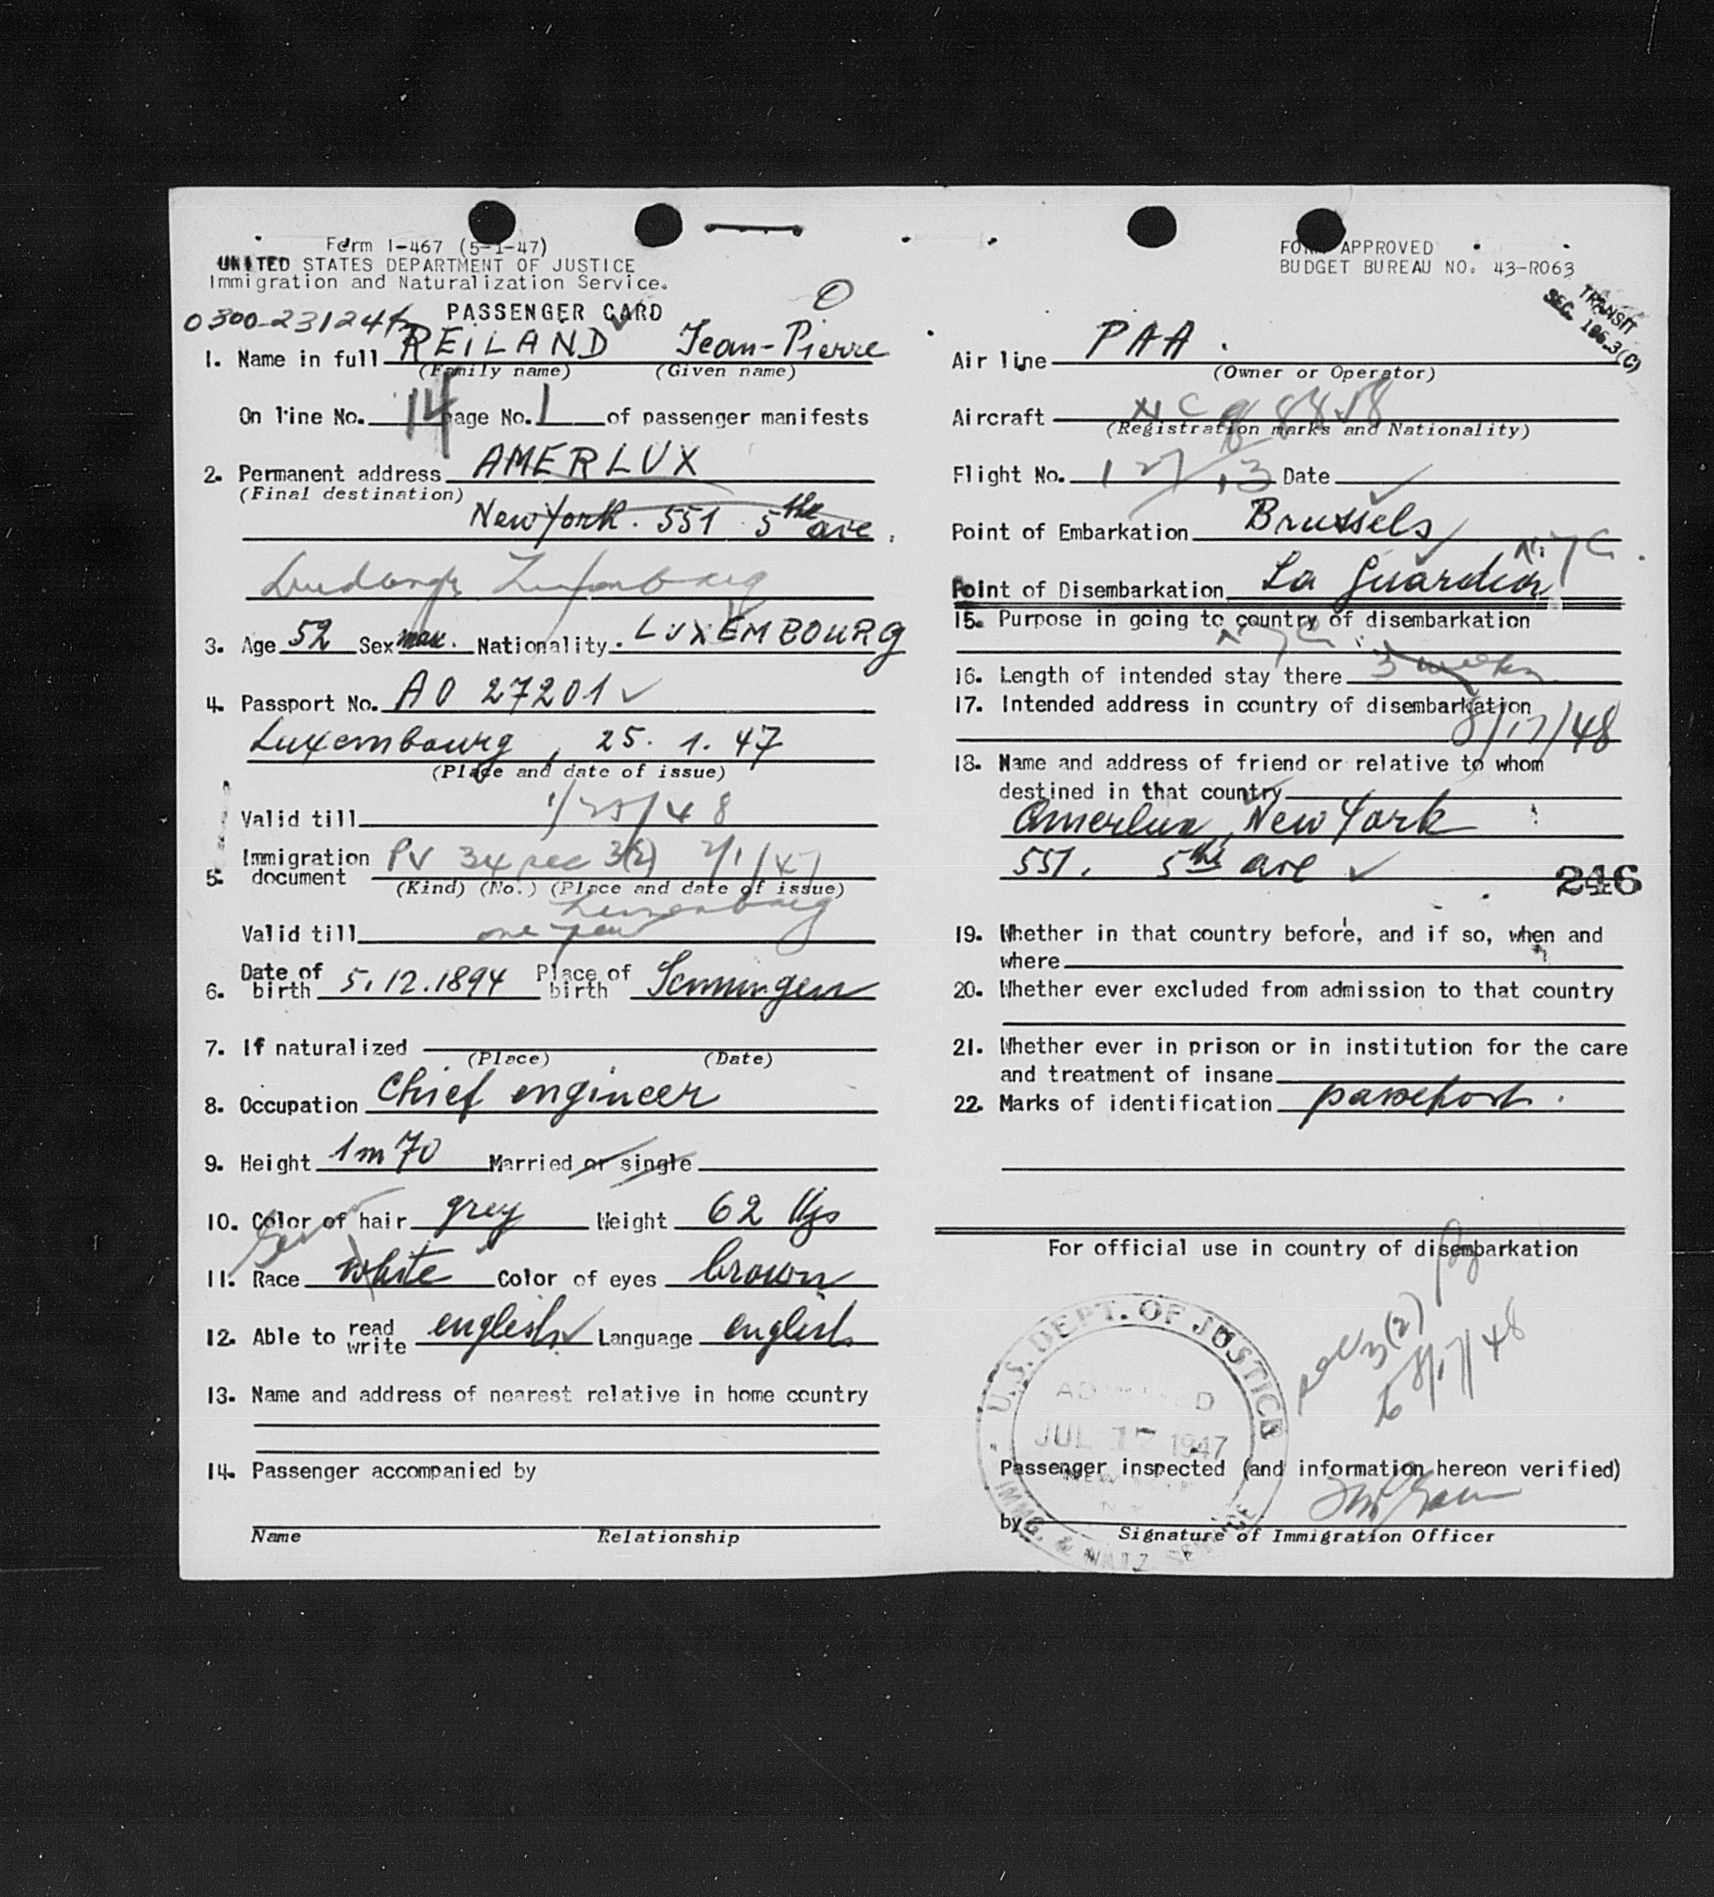 Form I-467 (5-1-47)
UNITED STATES DEPARTMENT OF JUSTICE
Immigration and Naturalization Service.
PASSENGER CARD
0300-231244
1. Name in full REILAND Jean-Pierre
(Family name) (Given name)
On line No. 14 page No. 1 of passenger manifests
2. Permanent address AMERLUX
(Final destination)
New York. 551 5the ave.
Luxembourg
3. Age 52 Sex Nationality. LUXEMBOURG
4. Passport No. A0 27201
Luxembourg, 25. 1. 47
(Place and date of issue)
Valid till 1/25/48
5. Immigration document PV 34 sec 3(2) 2/1/47
(Kind) (No.) (Place and date of issue)
Luxembourg
Valid till one year
6. Date of birth 5.12.1894 Place of birth
7. If naturalized
(Place) (Date)
8. Occupation Chief engineer
9. Height 1m70 Married or single
10. Color of hair grey Weight 62 kgs
11. Race white Color of eyes brown
12. Able to read write english Language english
13. Name and address of nearest relative in home country
14. Passenger accompanied by
Name Relationship
FORM APPROVED
BUDGET BUREAU NO. 43-R063
TRANSIT
SEC. 186.3(C)
Air line PAA.
(Owner or Operator)
Aircraft NC 88858
(Registration marks and Nationality)
Flight No. Date
Point of Embarkation Brussels
N.Y.C.
Point of Disembarkation La Guardia
15. Purpose in going to country of disembarkation
N.Y.C.
16. Length of intended stay there 3 weeks
17. Intended address in country of disembarkation
8/17/48
18. Name and address of friend or relative to whom
destined in that country
Amerlux, New York
551. 5the ave
246
19. Whether in that country before, and if so, when and
where
20. Whether ever excluded from admission to that country
21. Whether ever in prison or in institution for the care
and treatment of insane
22. Marks of identification passeport.
For official use in country of disembarkation
sec 3(2)
to 8/17/48
U.S. DEPT. OF JUSTICE
ADMITTED
JUL 17 1947
NEW YORK
N.Y.
IMMG. & NATZ SERVICE
Passenger inspected (and information hereon verified)
by
Signature of Immigration Officer